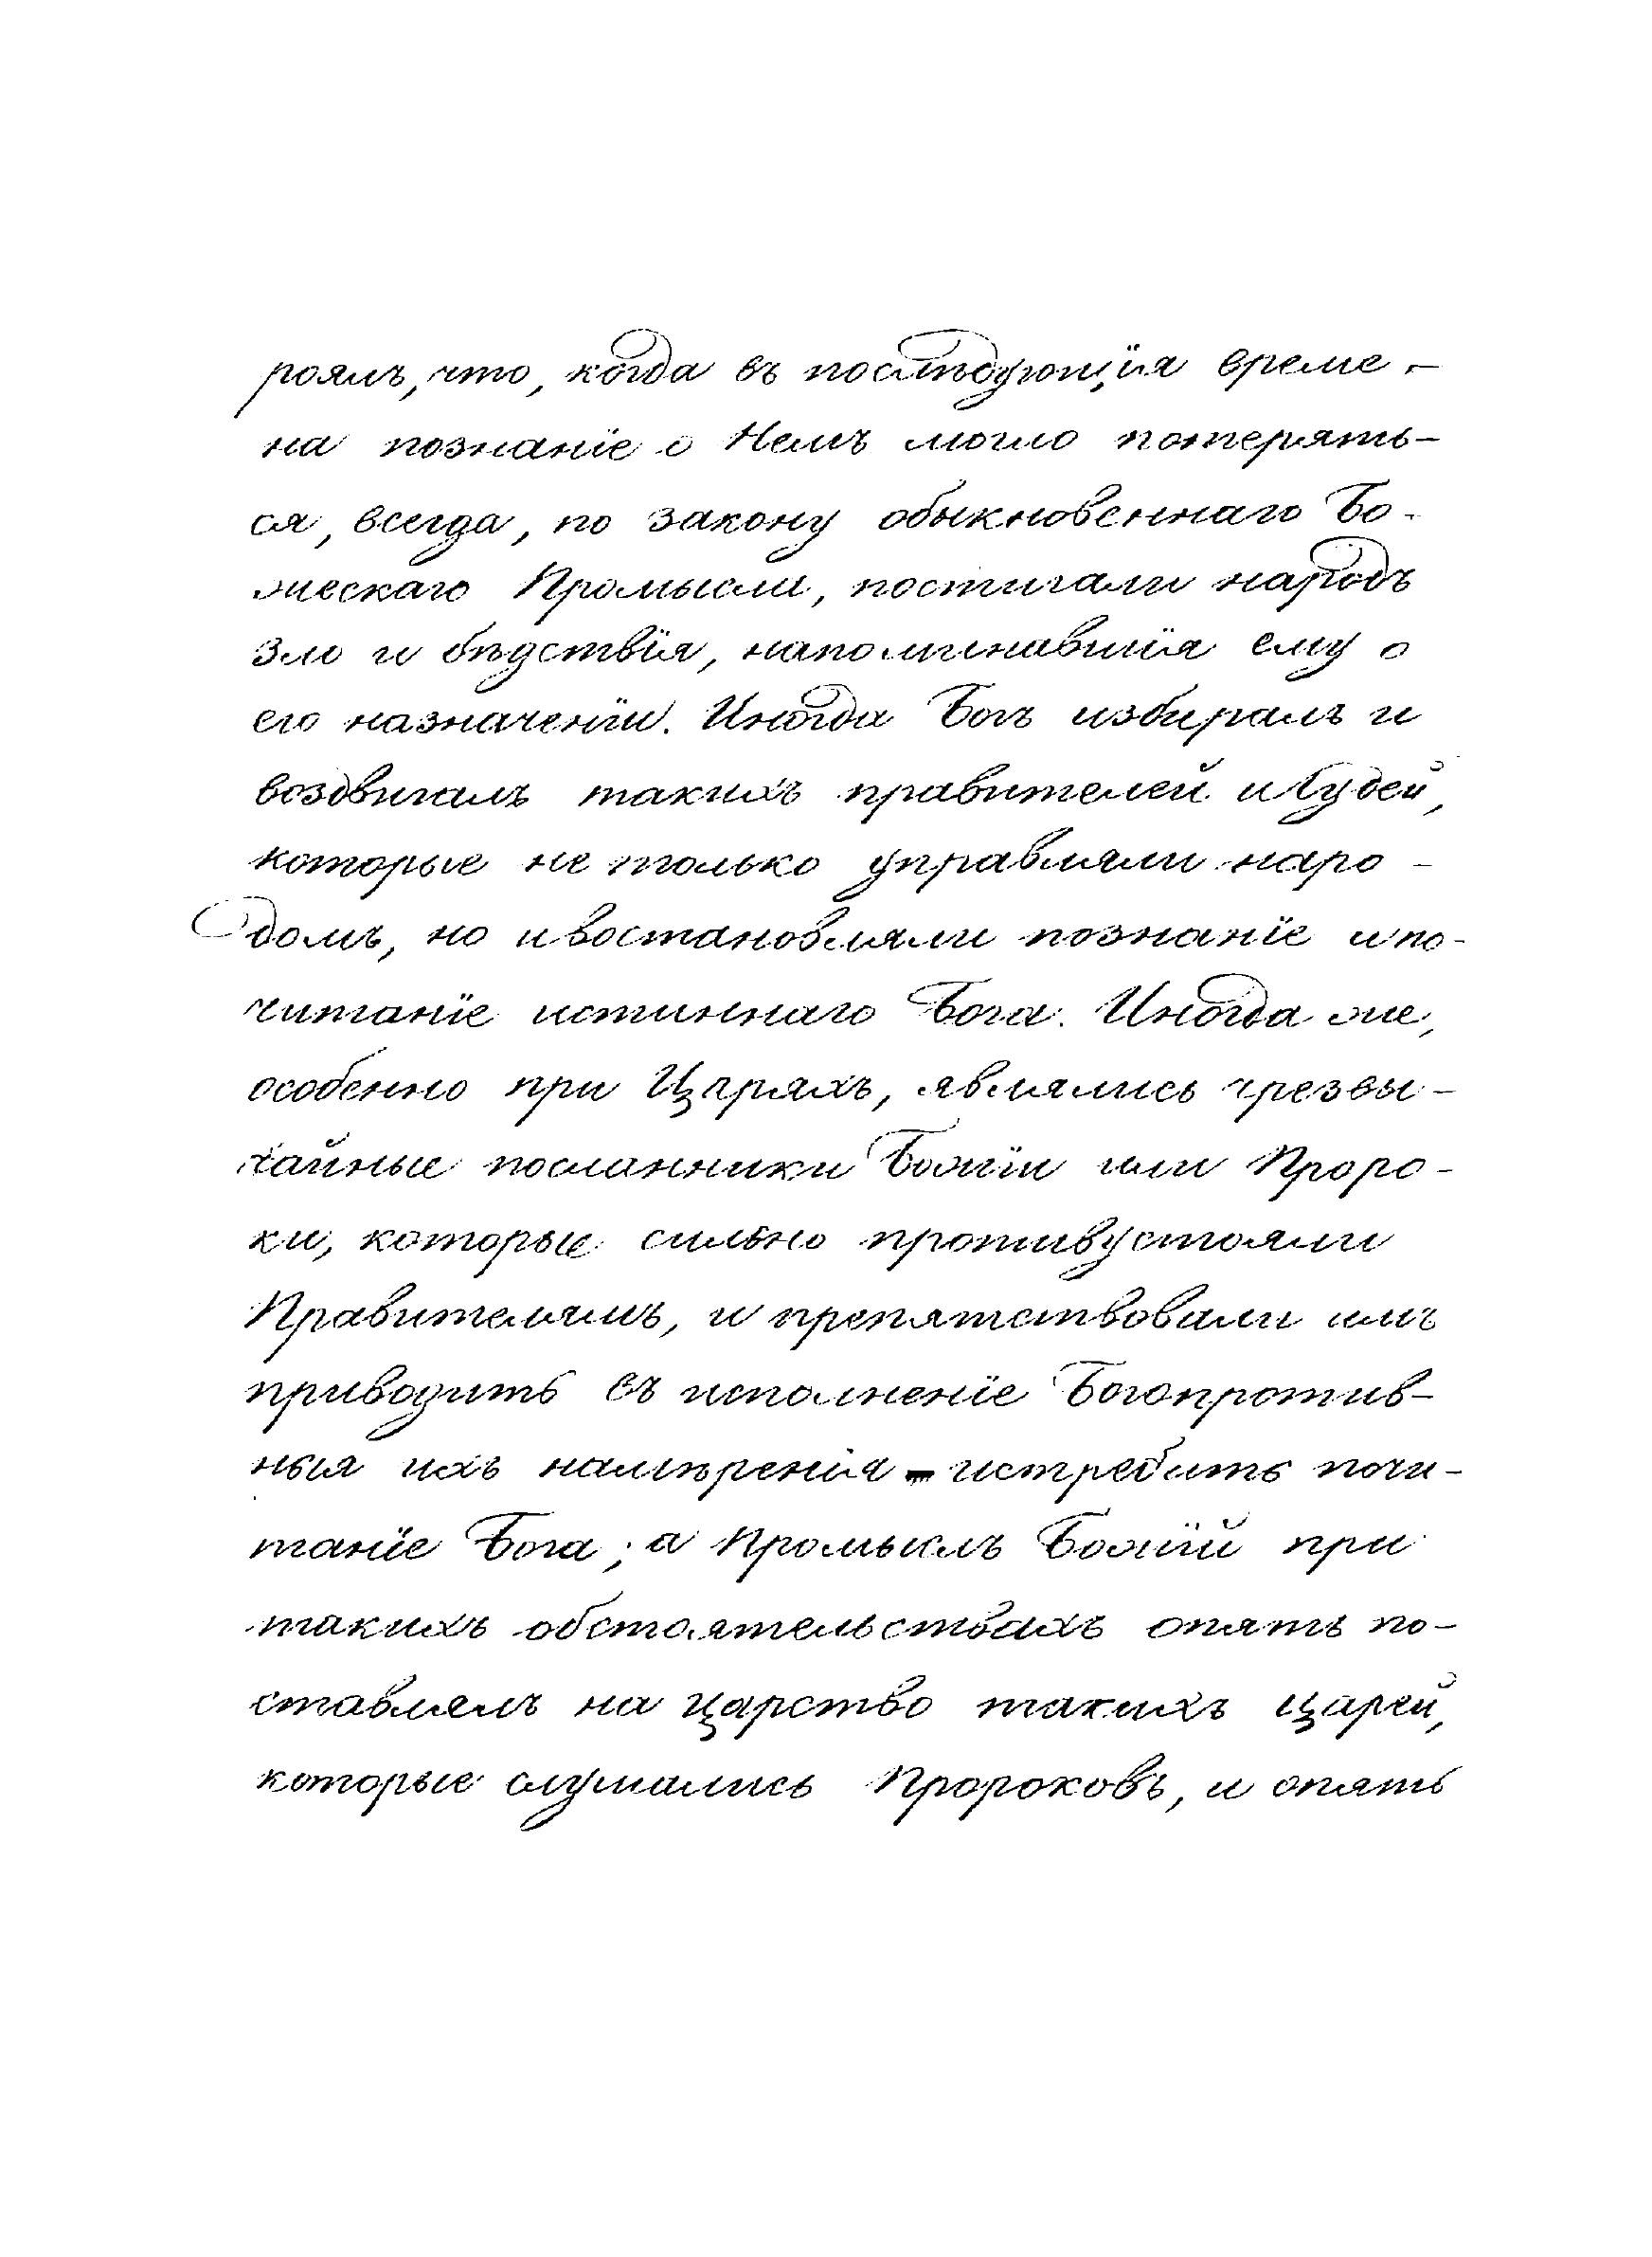 роялъ, что, когда въ послѣдующія време-
на познаніе о Немъ могло потерять-
ся, всегда, по закону обыкновеннаго Бо-
жескаго Промысла, постигали народъ
зло и бѣдствія, напоминавшія ему о
его назначеніи. Иногда Богъ избиралъ и
воздвигалъ такихъ правителей и Судей,
которые не только управляли наро-
домъ, но и востановляли познаніе и по-
читаніе истиннаго Бога. Иногда же,
особенно при Царяхъ, являлись чрезвы-
чайные посланники Божіи или Проро-
ки, которые сильно противустояли
Правителямъ, и препятствовали имъ
приводить въ исполненіе Богопротив-
ныя ихъ намѣренія - истребить почи-
таніе Бога; а Промыслъ Божій при
такихъ обстоятельствахъ опять по-
ставлялъ на царство такихъ царей,
которые слушались Пророковъ, и опять